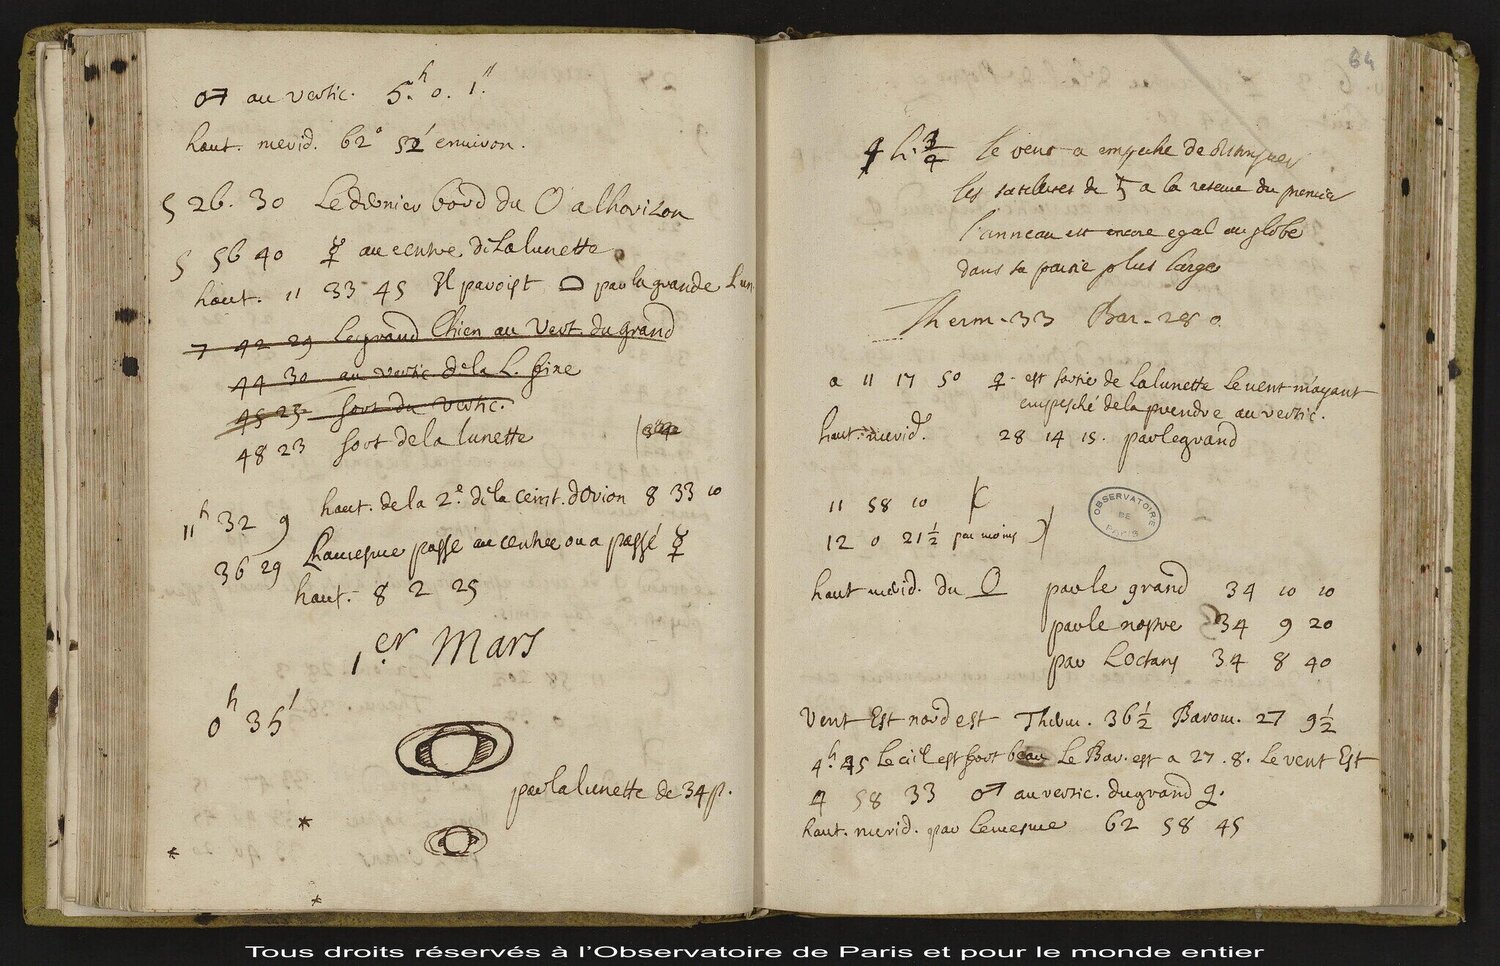 ♂ au vertic. 5.h 0. 1."
haut. merid. 62° 52' environ.
5 26. 30 Le dernier bord du ☉ a lhorizon
5 56 40 ☿ au centre de la lunette
haut. 11 33 45 Il paroist par la grande Lun
7 42 29 Le grand Chien au Vert. du grand
44 30 au vertic de la L. fixe
45 25 sort du vertic.
48 23 sort de la lunette
11h 32 9 haut. de la 2e de la ceint. dOrion 8 33 10
36 29 Lamesme passe au centre ou a passé ☿
haut. 8 2 25
1.er Mars
0h 35'
par la lunette de 34 p.
64
4 h. 3/4 le vent a empeche de distinguer
les satellites de ♄ a la reserve du premier
l'anneau est encore egal au globe
dans sa partie plus large
Therm. 33 Bar. 28 0
a 11 17 50 ♀ est sortie de la lunette le vent m'ayant
empesché de la prendre au vertic.
haut. merid. 28 14 15. par le grand
11 58 10
12 0 21 1/2 par moins
OBSERVATOIRE DE PARIS
haut merid. du ☉ par le grand 34 10 10
par le nostre 34 9 20
par Loctans 34 8 40
Vent Est nord est Therm. 36 1/2 Barom. 27 9 1/2
4h. 45 Le ciel est fort beau Le Bar. est a 27. 8. Le vent Est
4 58 33 ♂ au vertic. du grand q.
haut. merid. par Lemesme 62 58 45
Tous droits réservés à l'Observatoire de Paris et pour le monde entier